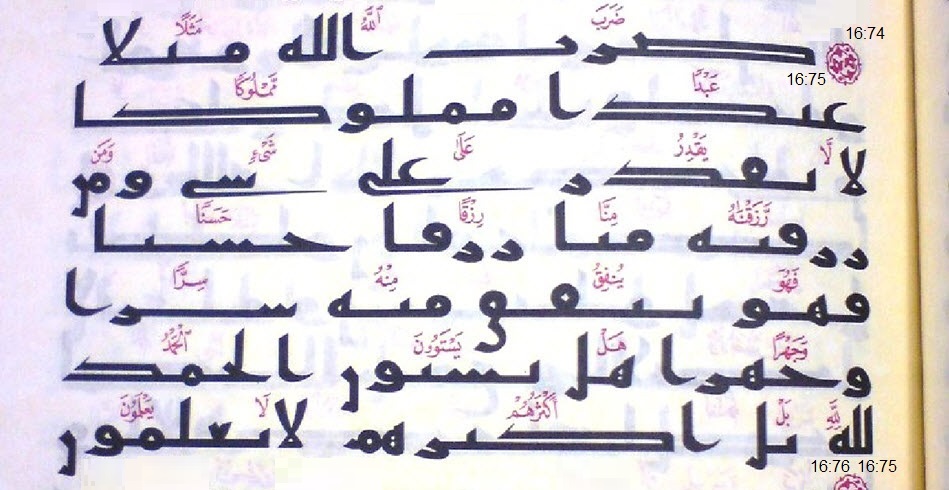 ضَرَبَ ٱللَّهُ مَثَلًا
16:74
ضرب الله مثلا
16:75
عَبْدًا مَّمْلُوكًا
عبدا مملوكا
لَّا يَقْدِرُ عَلَىٰ شَىْءٍ وَمَن
لا يقدر على شى ومن
رَّزَقْنَٰهُ مِنَّا رِزْقًا حَسَنًا
رزقنه منا رزقا حسنا
فَهُوَ يُنفِقُ مِنْهُ سِرًّا
فهو ينفق منه سرا
وَجَهْرًا هَلْ يَسْتَوُۥنَ ٱلْحَمْدُ
وجهرا هل يستون الحمد
لِلَّهِ بَلْ أَكْثَرُهُمْ لَا يَعْلَمُونَ
لله بل اكثرهم لا يعلمون
16:76 16:75